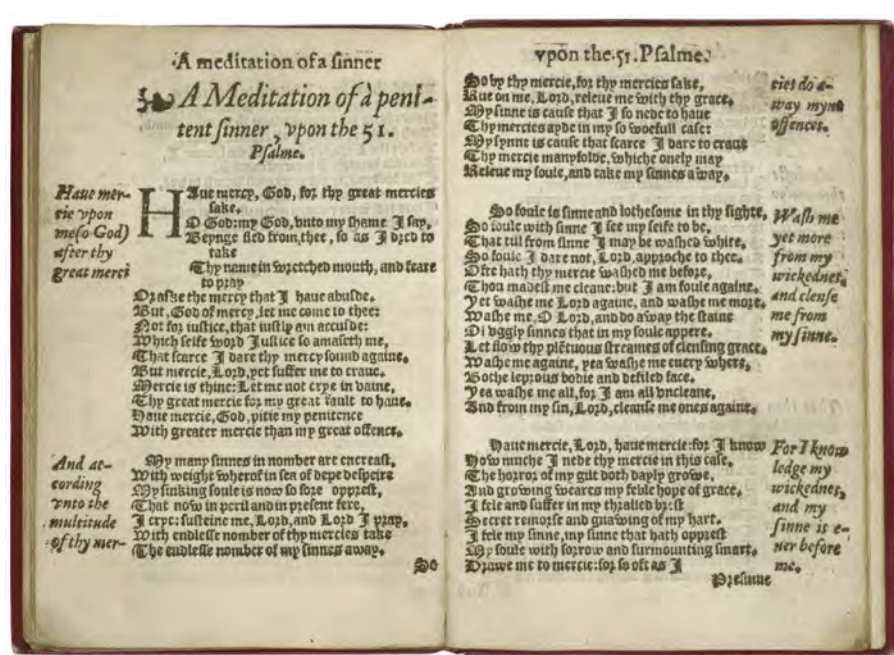 A meditation of a sinner
A Meditation of à peni-
tent sinner, vpon the 51.
Psalme.
Haue mer-
cie vpon
me(o God)
after thy
great merci
HAue mercy, God, for thy great mercies
sake.
O God: my God, vnto my shame I say,
Beynge fled from thee, so as I dred to
take
Thy name in wretched mouth, and feare
to pray
Or aske the mercy that I haue abusde.
But, God of mercy, let me come to thee:
Not for iustice, that iustly am accusde:
Which selfe word Iustice so amaseth me,
That scarce I dare thy mercy sound againe.
But mercie, Lord, yet suffer me to craue.
Mercie is thine: Let me not crye in vaine,
Thy great mercie for my great fault to haue.
Haue mercie, God, pitie my penitence
With greater mercie than my great offence.
And ac-
cording
vnto the
multitude
of thy mer-
My many sinnes in nomber are encreast,
With weight wherof in sea of depe despeire
My sinking soule is now so sore opprest,
That now in peril and in present fere,
I crye: susteine me, Lord, and Lord I pray,
With endlesse nomber of thy mercies take
The endlesse nomber of my sinnes away.
So
vpon the.51.Psalme.
So by thy mercie, for thy mercies sake,
Rue on me, Lord, releue me with thy grace.
My sinne is cause that I so nede to haue
Thy mercies ayde in my so woefull case:
My synne is cause that scarce I dare to craue
Thy mercie manyfolde, whiche onely may
Releue my soule, and take my sinnes away.
cies do a-
way myne
offences.
So foule is sinne and lothesome in thy sighte,
So foule with sinne I see my selfe to be,
That til from sinne I may be washed white,
So foule I dare not, Lord, approche to thee.
Ofte hath thy mercie washed me before,
Thou madest me cleane: but I am foule againe.
Yet washe me Lord againe, and washe me more.
Washe me, O Lord, and do away the staine
Of vggly sinnes that in my soule appere.
Let flow thy plẽtuous streames of clensing grace.
Washe me againe, yea washe me euery where,
Bothe leprous bodie and defiled face.
Yea washe me all, for I am all vncleane,
And from my sin, Lord, cleanse me ones againe.
Wash me
yet more
from my
wickednes,
and clense
me from
my sinne.
Haue mercie, Lord, haue mercie: for I know
How muche I nede thy mercie in this case.
The horror of my gilt doth dayly growe,
And growing weares my feble hope of grace.
I fele and suffer in my thralled brest
Secret remorse and gnawing of my hart.
I fele my sinne, my sinne that hath opprest
My soule with sorrow and surmounting smart.
Drawe me to mercie: for so oft as I
For I know
ledge my
wickednes,
and my
sinne is e-
uer before
me.
Presume